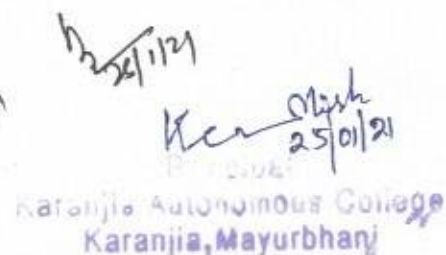 25/1/21
Mish
25/01/21
Principal
Karanjia Autonomous College
Karanjia, Mayurbhanj